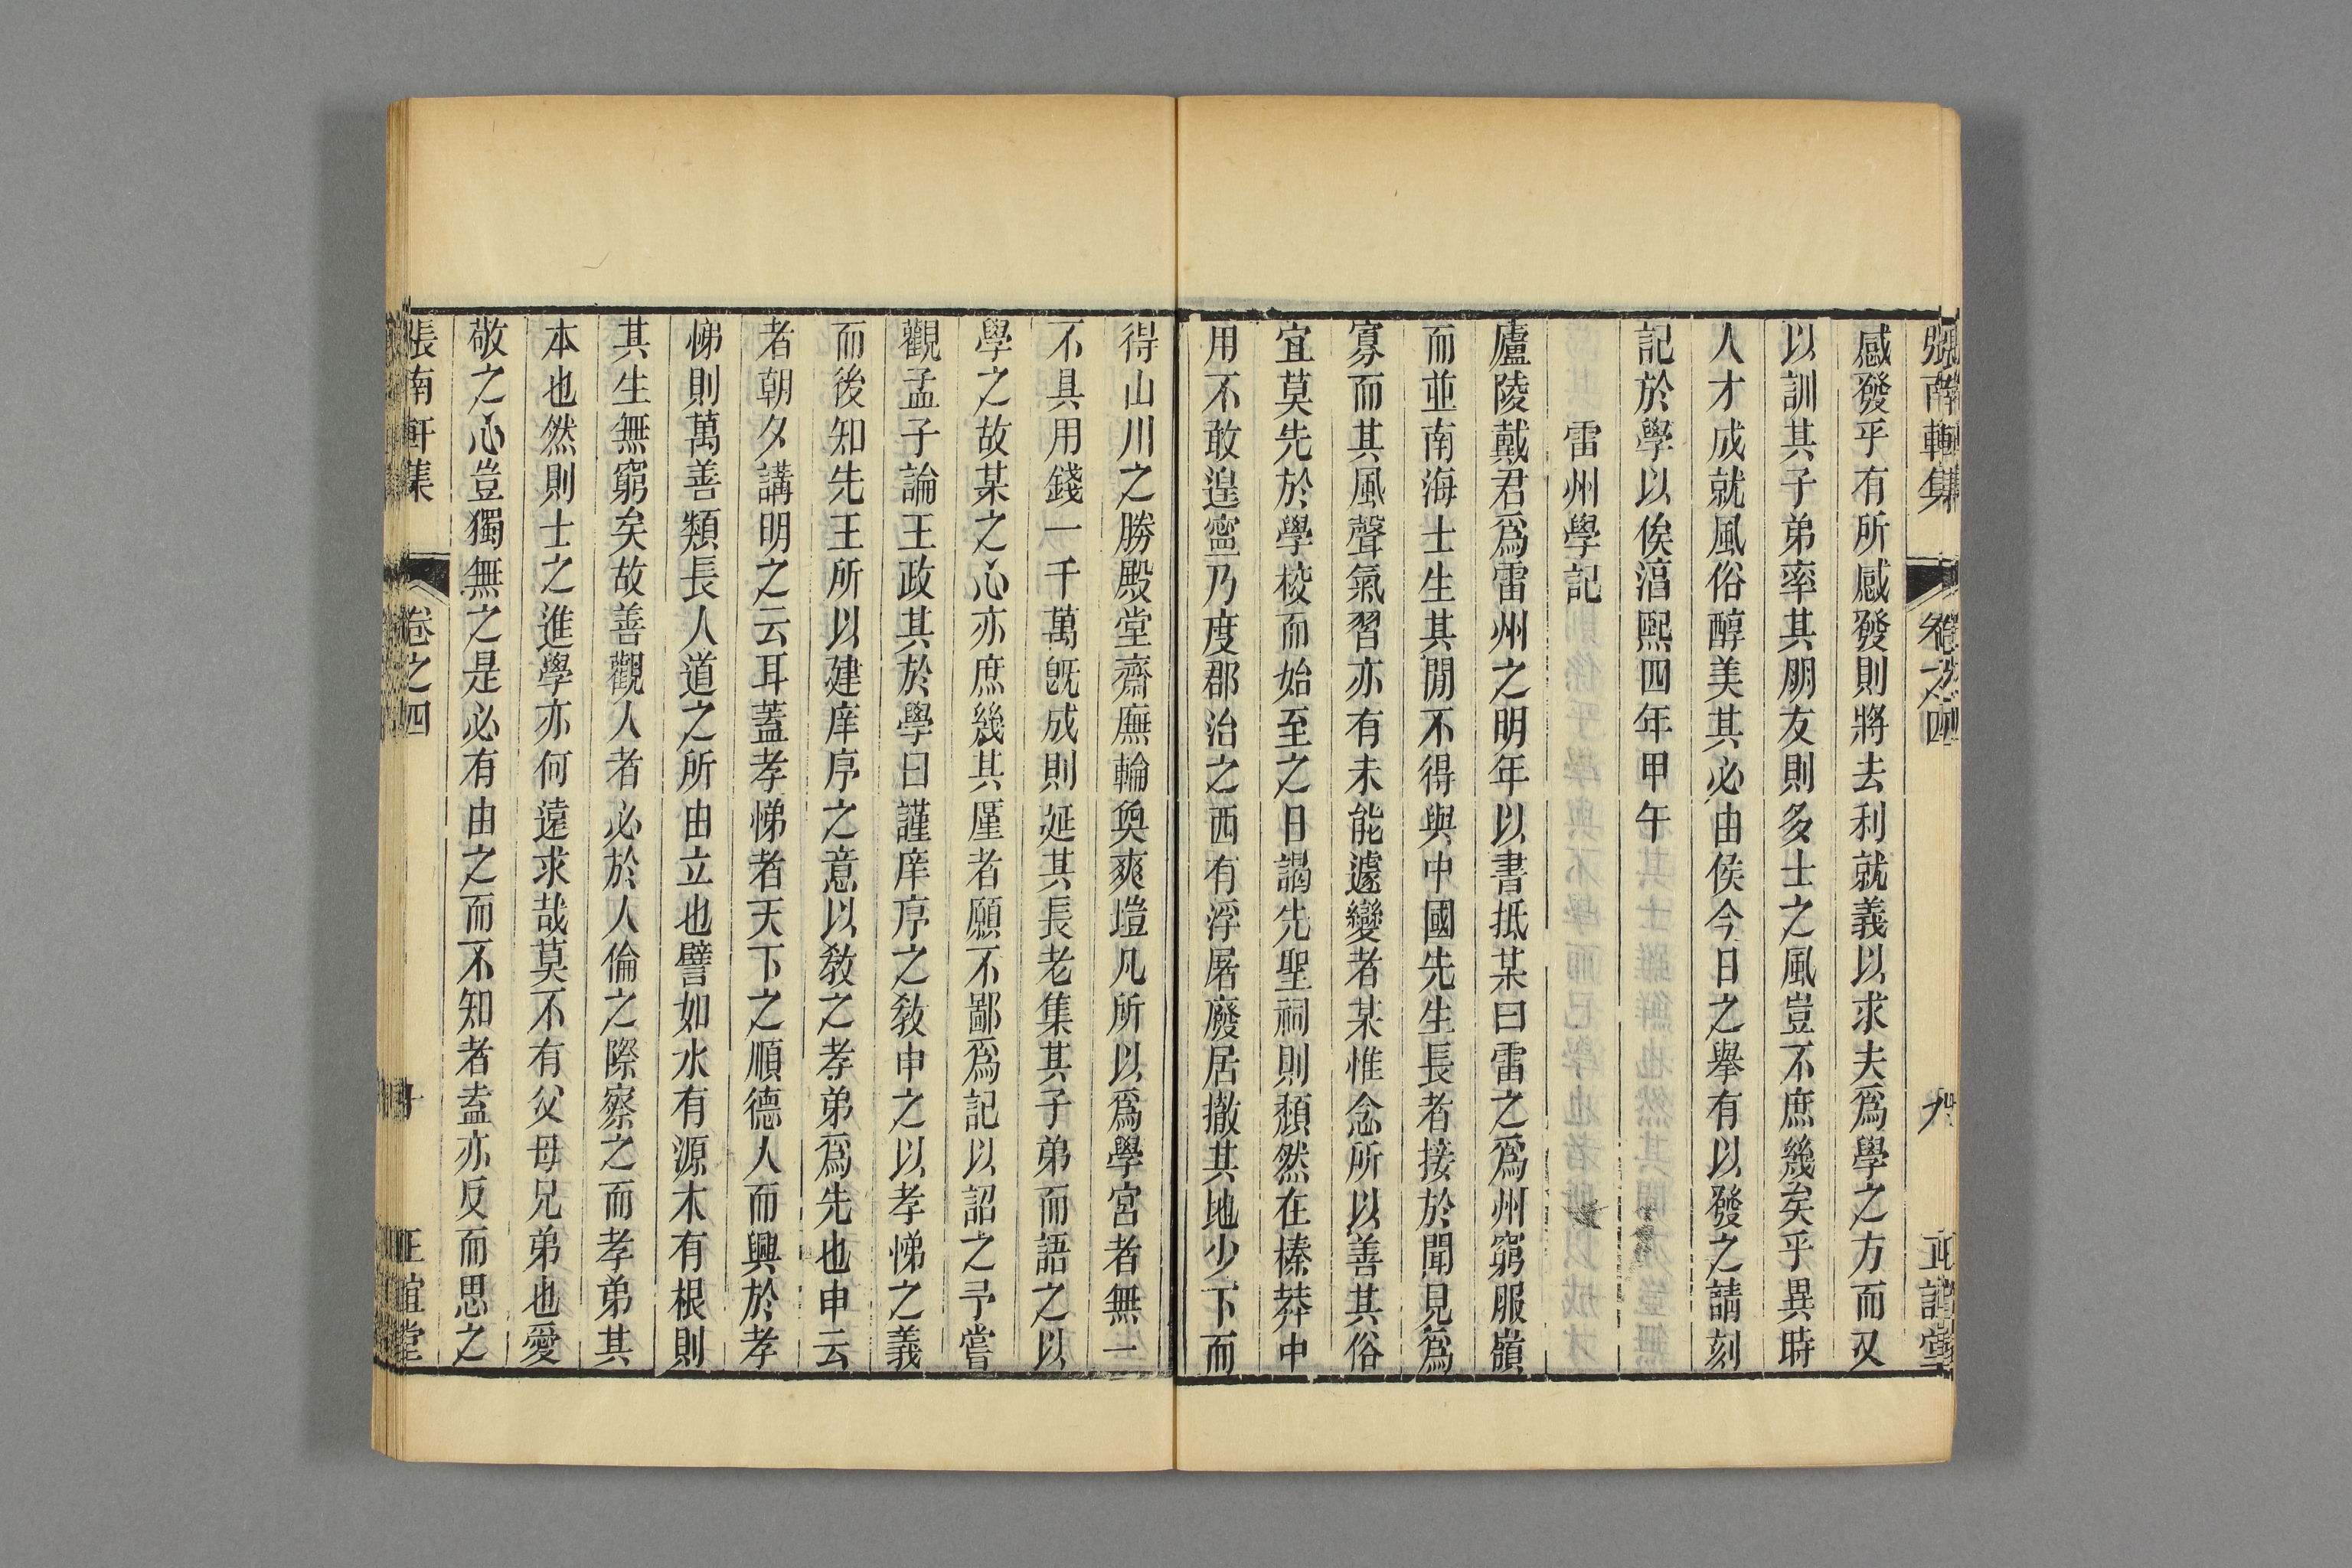 張南軒集 卷之四 九 正誼堂
感發乎有所感發則將去利就義以求夫爲學之方而又
以訓其子弟率其朋友則多士之風豈不庶幾矣乎異時
人才成就風俗醇美其必由侯今日之舉有以發之請刻
記於學以俟湻熙四年甲午
雷州學記
廬陵戴君爲雷州之明年以書抵某曰雷之爲州窮服嶺
而並南海士生其閒不得與中國先生長者接於聞見爲
寡而其風聲氣習亦有未能遽變者某惟念所以善其俗
宜莫先於學校而始至之日謁先聖祠則頹然在榛莽中
用不敢遑寍乃度郡治之西有浮屠廢居撤其地少下而
得山川之勝殿堂齋廡輪奐爽塏凡所以爲學宮者無一
不具用錢一千萬旣成則延其長老集其子弟而語之以
學之故某之心亦庶幾其厪者願不鄙爲記以詔之予嘗
觀孟子論王政其於學曰謹庠序之敎申之以孝悌之義
而後知先王所以建庠序之意以敎之孝弟爲先也申云
者朝夕講明之云耳蓋孝悌者天下之順德人而興於孝
悌則萬善類長人道之所由立也譬如水有源木有根則
其生無窮矣故善觀人者必於人倫之際察之而孝弟其
本也然則士之進學亦何遠求哉莫不有父母兄弟也愛
敬之心豈獨無之是必有由之而不知者盍亦反而思之
張南軒集 卷之四 十 正誼堂